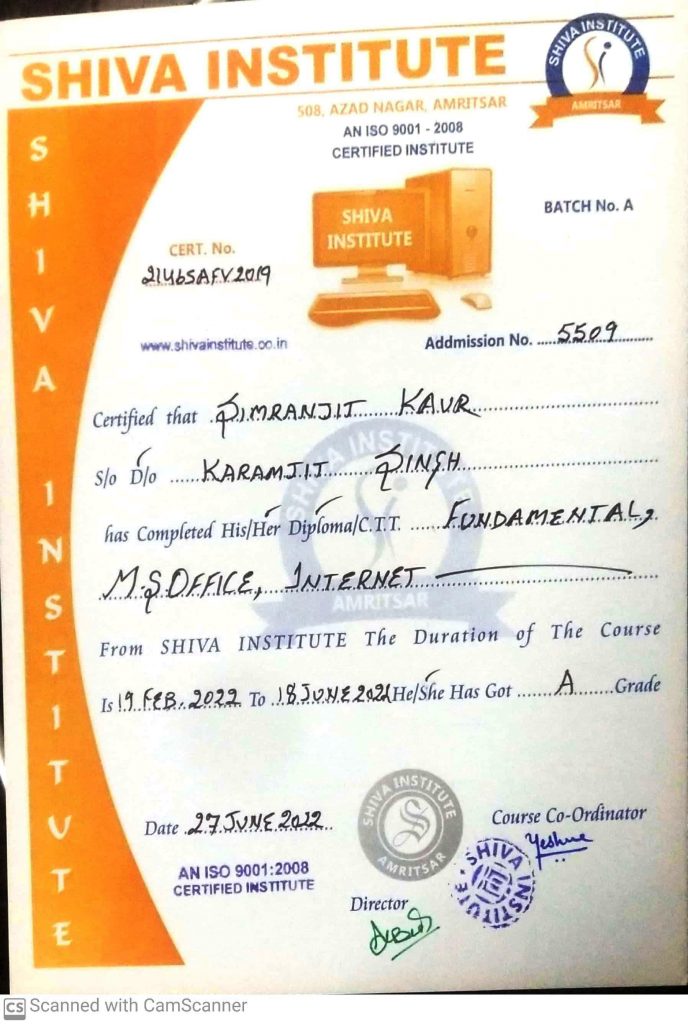 SHIVA INSTITUTE
SHIVA INSTITUTE
AMRITSAR
508, AZAD NAGAR, AMRITSAR
AN ISO 9001 - 2008
CERTIFIED INSTITUTE
SHIVA INSTITUTE
SHIVA
INSTITUTE
BATCH No. A
CERT. No.
2146SAFV2019
www.shivainstitute.co.in
Addmission No. 5509
Certified that SIMRANJIT KAUR
S/o D/o KARAMJIT SINGH
has Completed His/Her Diploma/C.T.T. FUNDAMENTAL,
M.S OFFICE, INTERNET
SHIVA INSTITUTE
AMRITSAR
From SHIVA INSTITUTE The Duration of The Course
Is 19 FEB. 2022 To 18 JUNE 2021 He/She Has Got A Grade
Date 27 JUNE 2022
SHIVA INSTITUTE
AMRITSAR
Course Co-Ordinator
AN ISO 9001:2008
CERTIFIED INSTITUTE
SHIVA INSTITUTE
Director
CS Scanned with CamScanner